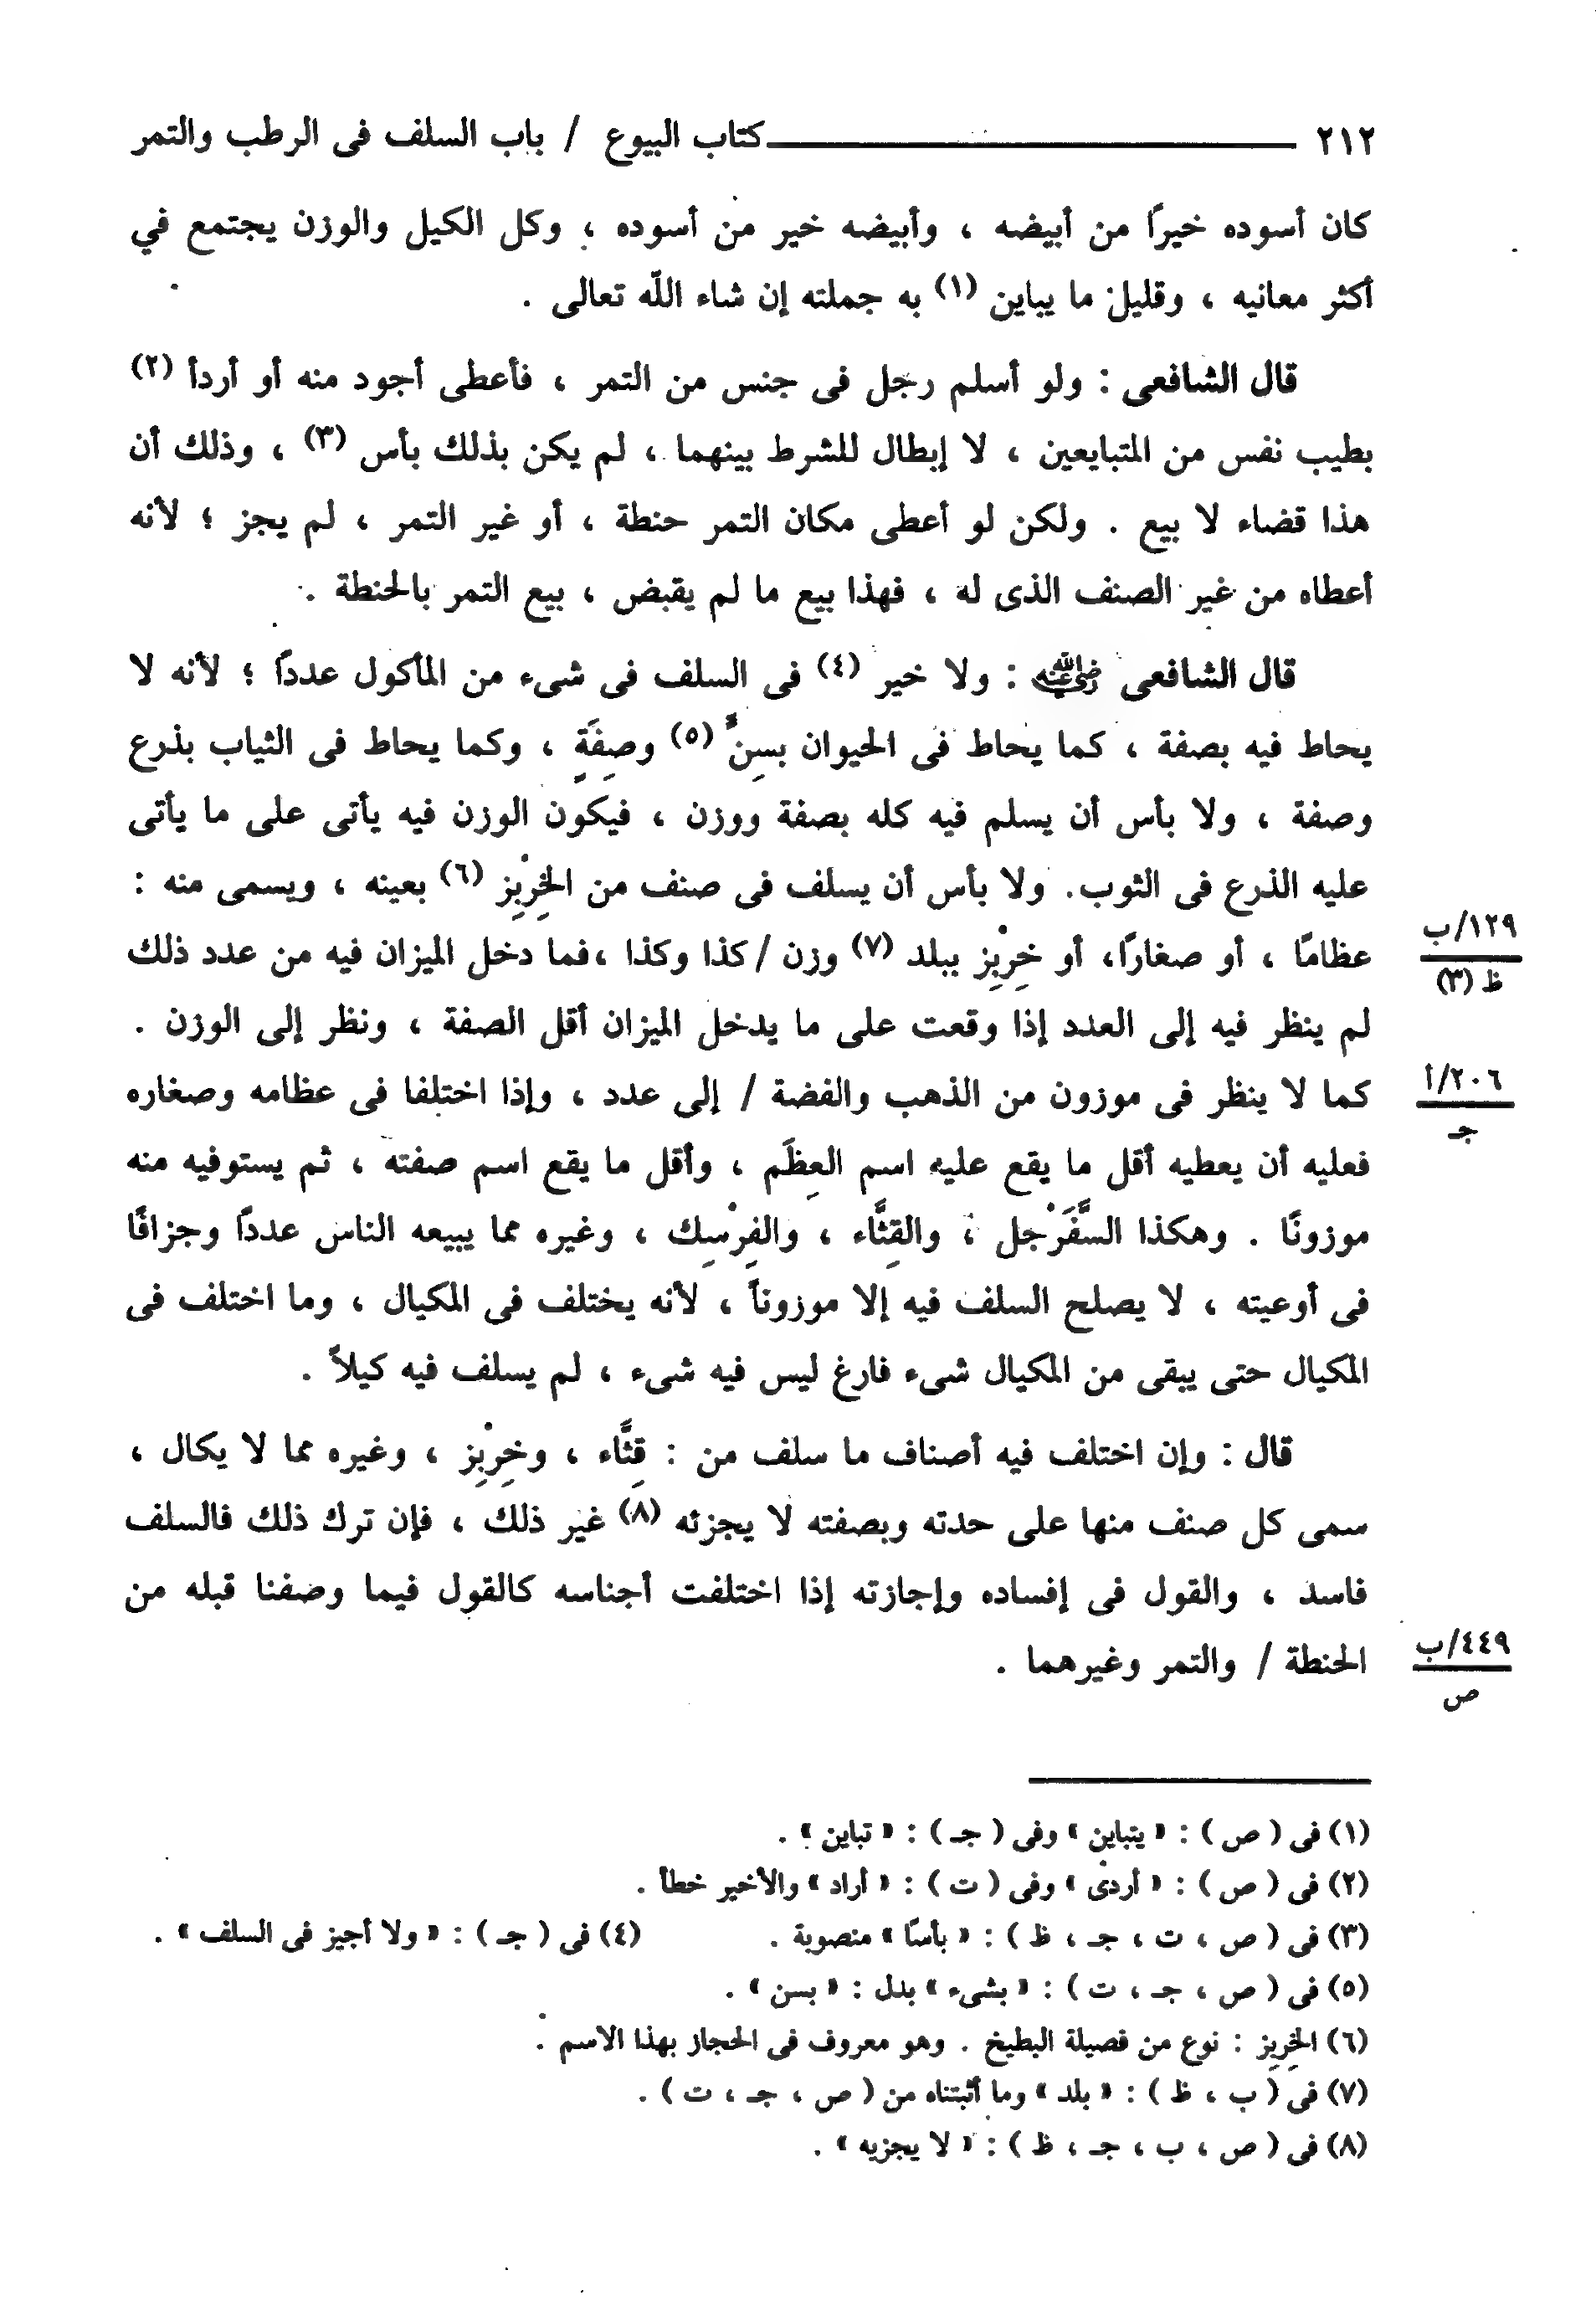 ٢١٢ ــــــــــــــــــــــ كتاب البيوع / باب السلف فى الرطب والتمر
كان أسوده خيراً من أبيضه ، وأبيضه خير من أسوده ، وكل الكيل والوزن يجتمع في
أكثر معانيه ، وقليل ما يباين (١) به جملته إن شاء اللّه تعالى .
قال الشافعى : ولو أسلم رجل فى جنس من التمر ، فأعطى أجود منه أو أردأ (٢)
بطيب نفس من المتبايعين ، لا إبطال للشرط بينهما ، لم يكن بذلك بأس (٣) ، وذلك أن
هذا قضاء لا بيع . ولكن لو أعطى مكان التمر حنطة ، أو غير التمر ، لم يجز ؛ لأنه
أعطاه من غير الصنف الذى له ، فهذا بيع ما لم يقبض ، بيع التمر بالحنطة .
قال الشافعى رضي الله عنه : ولا خير (٤) فى السلف فى شىء من المأكول عددًا ؛ لأنه لا
يحاط فيه بصفة ، كما يحاط فى الحيوان بسِنٍّ (٥) وصِفَةٍ ، وكما يحاط فى الثياب بذرع
وصفة ، ولا بأس أن يسلم فيه كله بصفة ووزن ، فيكون الوزن فيه يأتى على ما يأتى
عليه الذرع فى الثوب. ولا بأس أن يسلف فى صنف من الخِرْبِز (٦) بعينه ، ويسمى منه :
عظامًا ، أو صغارًا، أو خِرْبِز ببلد (٧) وزن / كذا وكذا ،فما دخل الميزان فيه من عدد ذلك
١٢٩/ب
ظ (٣)
لم ينظر فيه إلى العدد إذا وقعت على ما يدخل الميزان أقل الصفة ، ونظر إلى الوزن .
كما لا ينظر فى موزون من الذهب والفضة / إلى عدد ، وإذا اختلفا فى عظامه وصغاره
٢٠٦/أ
جـ
فعليه أن يعطيه أقل ما يقع عليه اسم العِظَم ، وأقل ما يقع اسم صفته ، ثم يستوفيه منه
موزونًا . وهكذا السَّفَرْجل ، والقِثَّاء ، والفِرْسِك ، وغيره مما يبيعه الناس عددًا وجزافًا
فى أوعيته ، لا يصلح السلف فيه إلا موزوناً ، لأنه يختلف فى المكيال ، وما اختلف فى
المكيال حتى يبقى من المكيال شىء فارغ ليس فيه شىء ، لم يسلف فيه كيلاً .
قال : وإن اختلف فيه أصناف ما سلف من : قِثَّاء ، وخِرْبِز ، وغيره مما لا يكال ،
سمى كل صنف منها على حدته وبصفته لا يجزئه (٨) غير ذلك ، فإن ترك ذلك فالسلف
فاسد ، والقول فى إفساده وإجازته إذا اختلفت أجناسه كالقول فيما وصفنا قبله من
الحنطة / والتمر وغيرهما .
٤٤٩/ب
ص
(١) فى ( ص ) : « يتباين » وفى ( جـ ) : « تباين » .
(٢) فى ( ص ) : « أردىْ » وفى ( ت ) : « أراد » والأخير خطأ .
(٣) فى ( ص ، ت ، جـ ، ظ ) : « بأسًا » منصوبة . (٤) فى ( جـ ) : « ولا أجيز فى السلف » .
(٥) فى ( ص ، جـ ، ت ) : « بشىء » بدل : « بسن » .
(٦) الخِرْبِز : نوع من فصيلة البطيخ . وهو معروف فى الحجاز بهذا الاسم .
(٧) فى ( ب ، ظ ) : « بلد » وما أثبتناه من ( ص ، جـ ، ت ) .
(٨) فى ( ص ، ب ، جـ ، ظ ) : « لا يجزيه » .